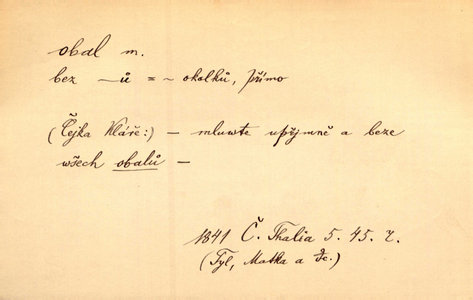 obal m.
bez —ů = ~ okolků, přímo
(Čejka Kláře:) — mluwte upřjmně a beze
wšech obalů —
1841 Č. Thalia 5. 45. ř.
(Tyl, Matka a dc.)